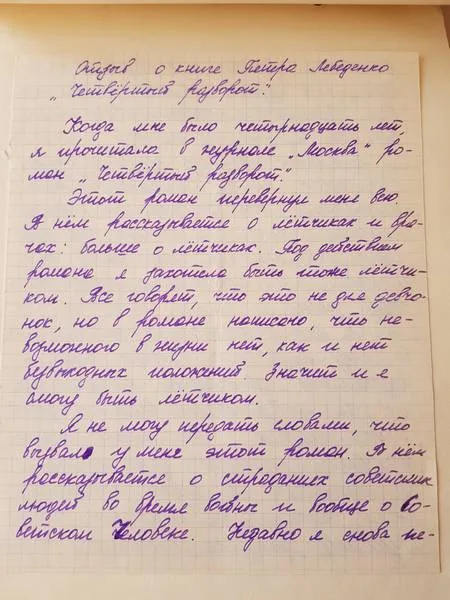 Отзыв о книге Петра Лебеденко
„Четвёртый разворот".
Когда мне было четырнадцать лет,
я прочитала в журнале „Москва" ро-
ман „Четвёртый разворот".
Этот роман перевернул меня всю.
В нём рассказывается о лётчиках и вра-
чах: больше о лётчиках. Под действием
романа я захотела быть тоже лётчи-
ком. Все говорят, что это не для девчо-
нок, но в романе написано, что не-
возможного в жизни нет, как и нет
безвыходных положений. Значит и я
смогу быть лётчиком.
Я не могу передать словами, что
вызвал у меня этот роман. В нём
рассказывается о страданиях советских
людей во время войны и вообще о Со-
ветском Человеке. Недавно я снова пе-